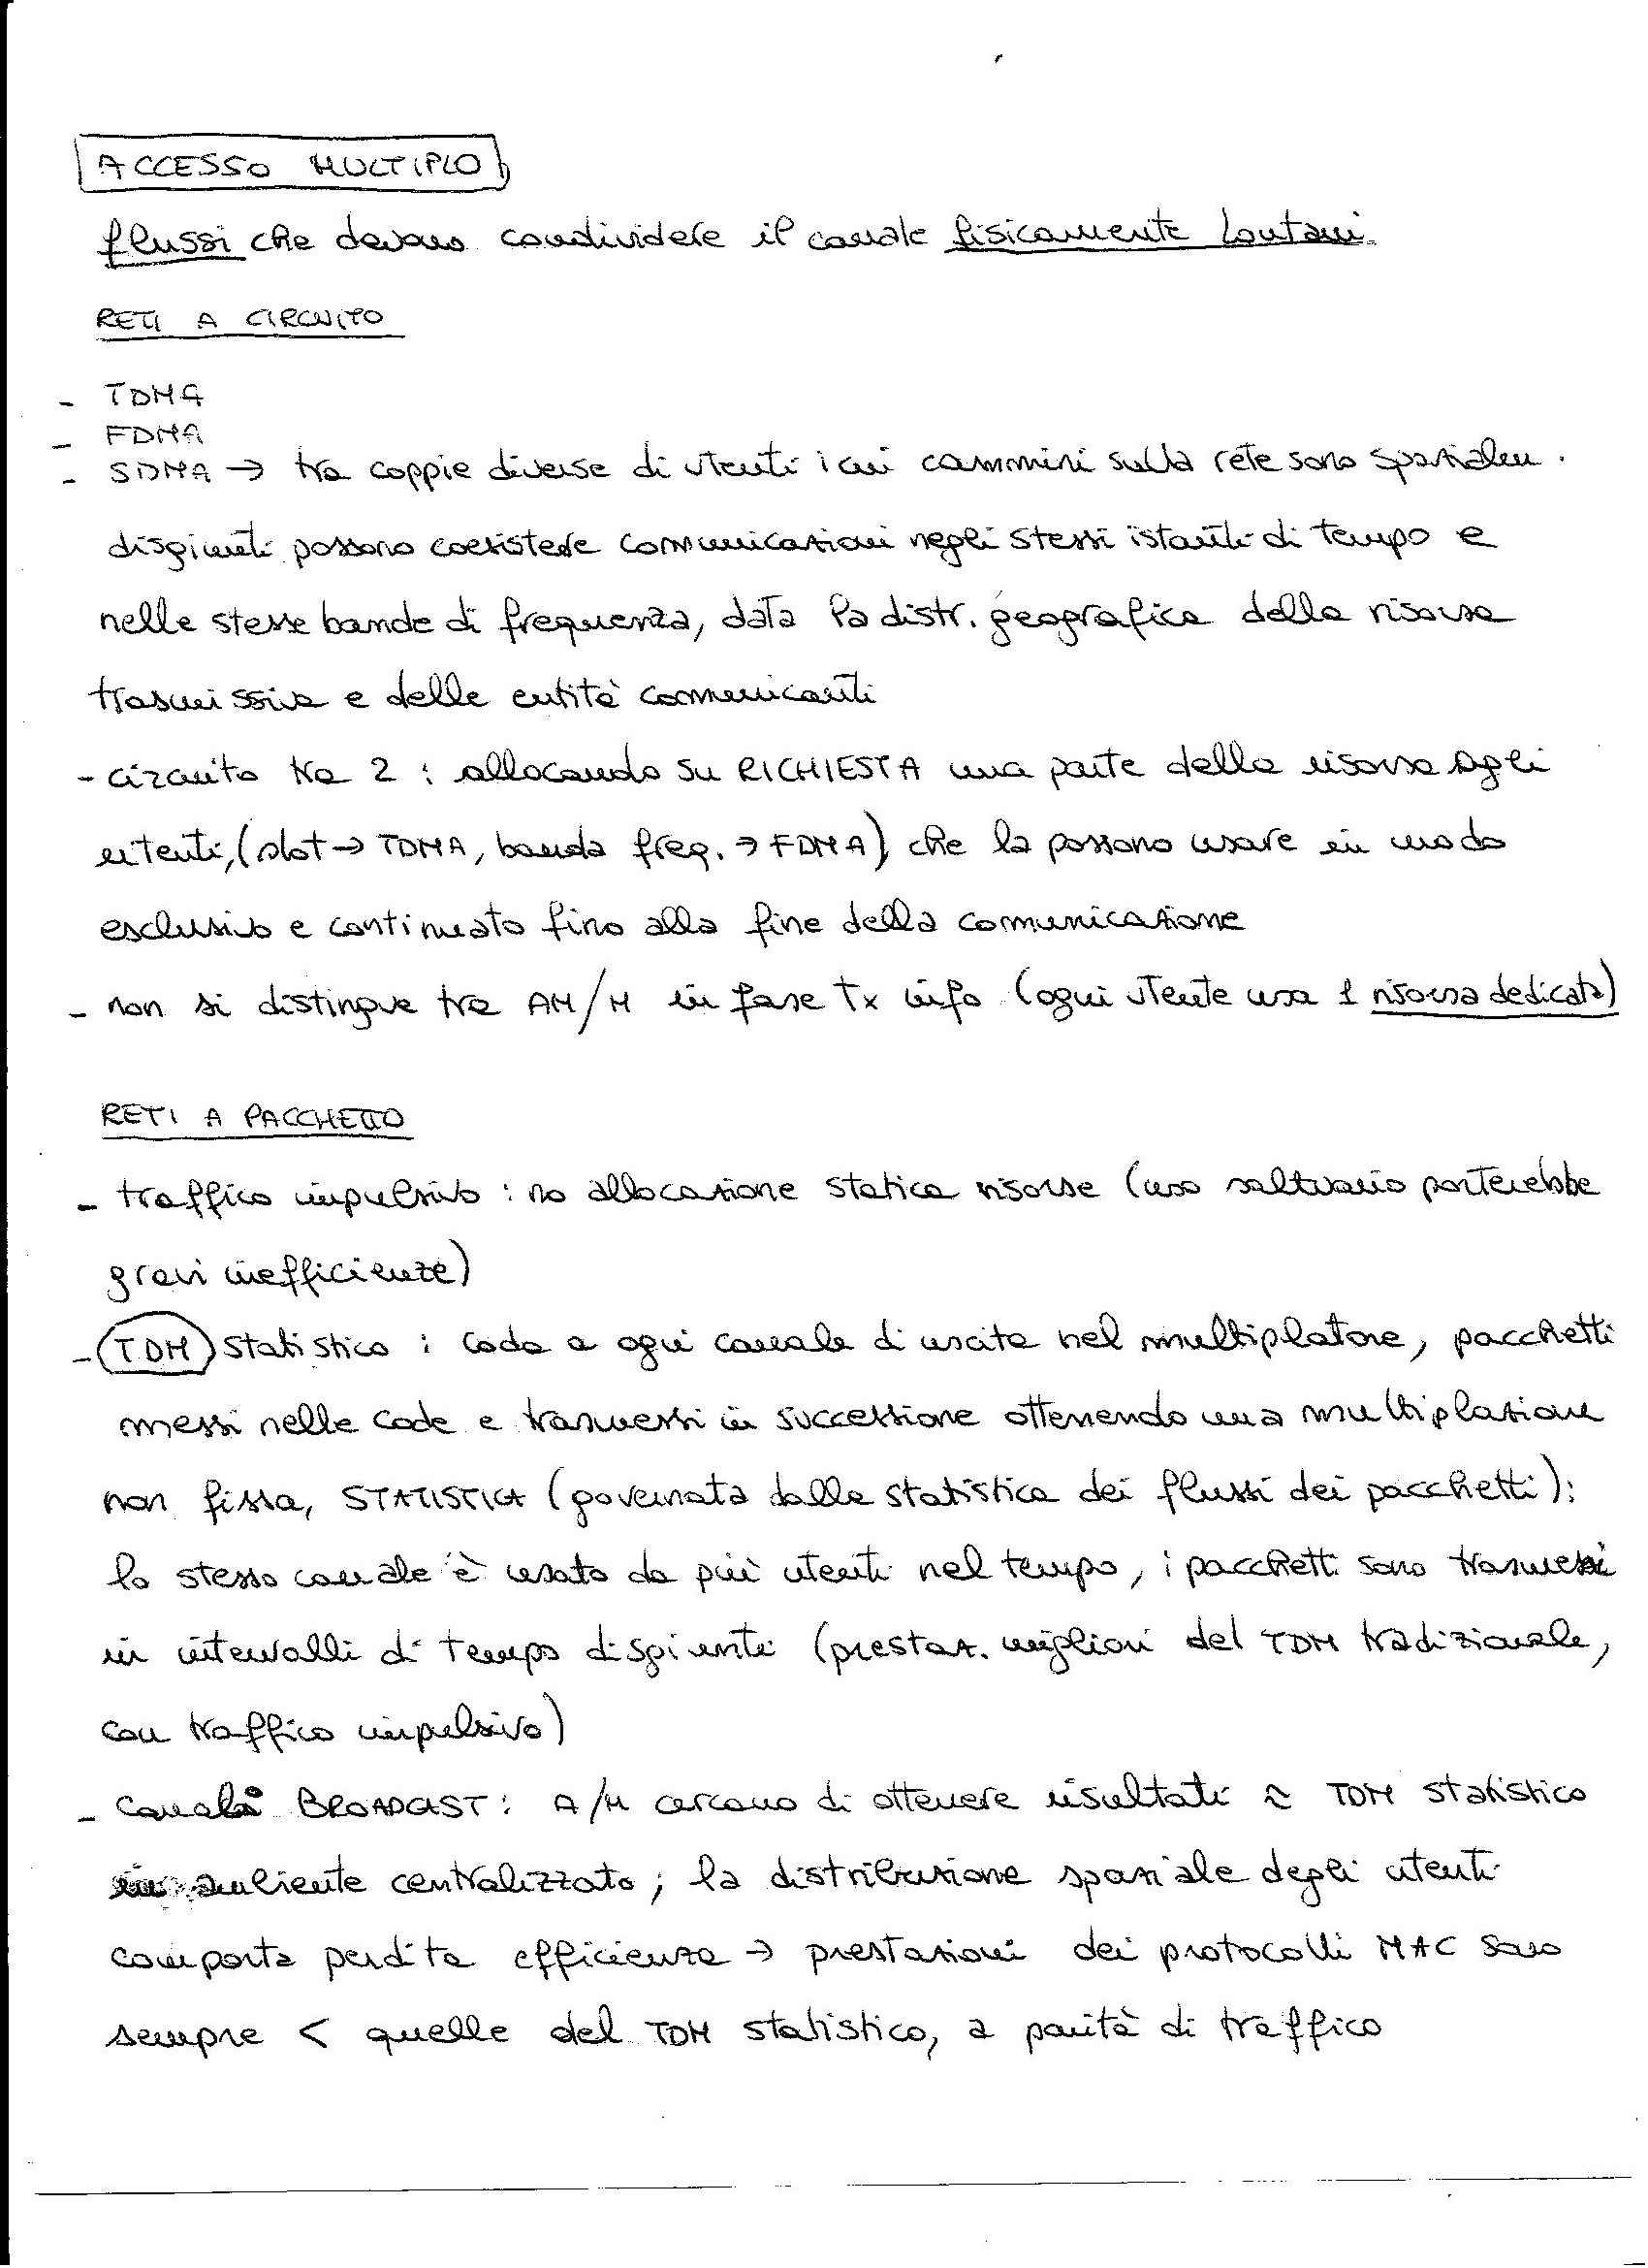 ACCESSO MULTIPLO
flussi che devono condividere il canale fisicamente lontani.
RETI A CIRCUITO
- TDMA
- FDMA
- SDMA → tra coppie diverse di utenti i cui cammini sulla rete sono spazialm.
disgiunti possono coesistere comunicazioni negli stessi istanti di tempo e
nelle stesse bande di frequenza, data la distr. geografica della risorsa
trasmissiva e delle entità comunicanti
- circuito tra 2 : allocando su RICHIESTA una parte della risorsa agli
utenti, (slot → TDMA, banda freq. → FDMA) che la possono usare in modo
esclusivo e continuato fino alla fine della comunicazione
- non si distingue tra AM/M in fase Tx info (ogni utente usa 1 risorsa dedicata)
RETI A PACCHETTO
- traffico impulsivo : no allocazione statica risorse (uso saltuario porterebbe
gravi inefficienze)
- TDM statistico : coda a ogni canale di uscita nel multiplatore, pacchetti
messi nelle code e trasmessi in successione ottenendo una multiplazione
non fissa, STATISTICA (governata dalla statistica dei flussi dei pacchetti):
lo stesso canale è usato da più utenti nel tempo, i pacchetti sono trasmessi
in intervalli di tempo disgiunti (prestaz. migliori del TDM tradizionale,
con traffico impulsivo)
- Canali BROADCAST: A/M cercano di ottenere risultati ≈ TDM statistico
in ambiente centralizzato; la distribuzione spaziale degli utenti
comporta perdita efficienza → prestazioni dei protocolli MAC sono
sempre < quelle del TDM statistico, a parità di traffico